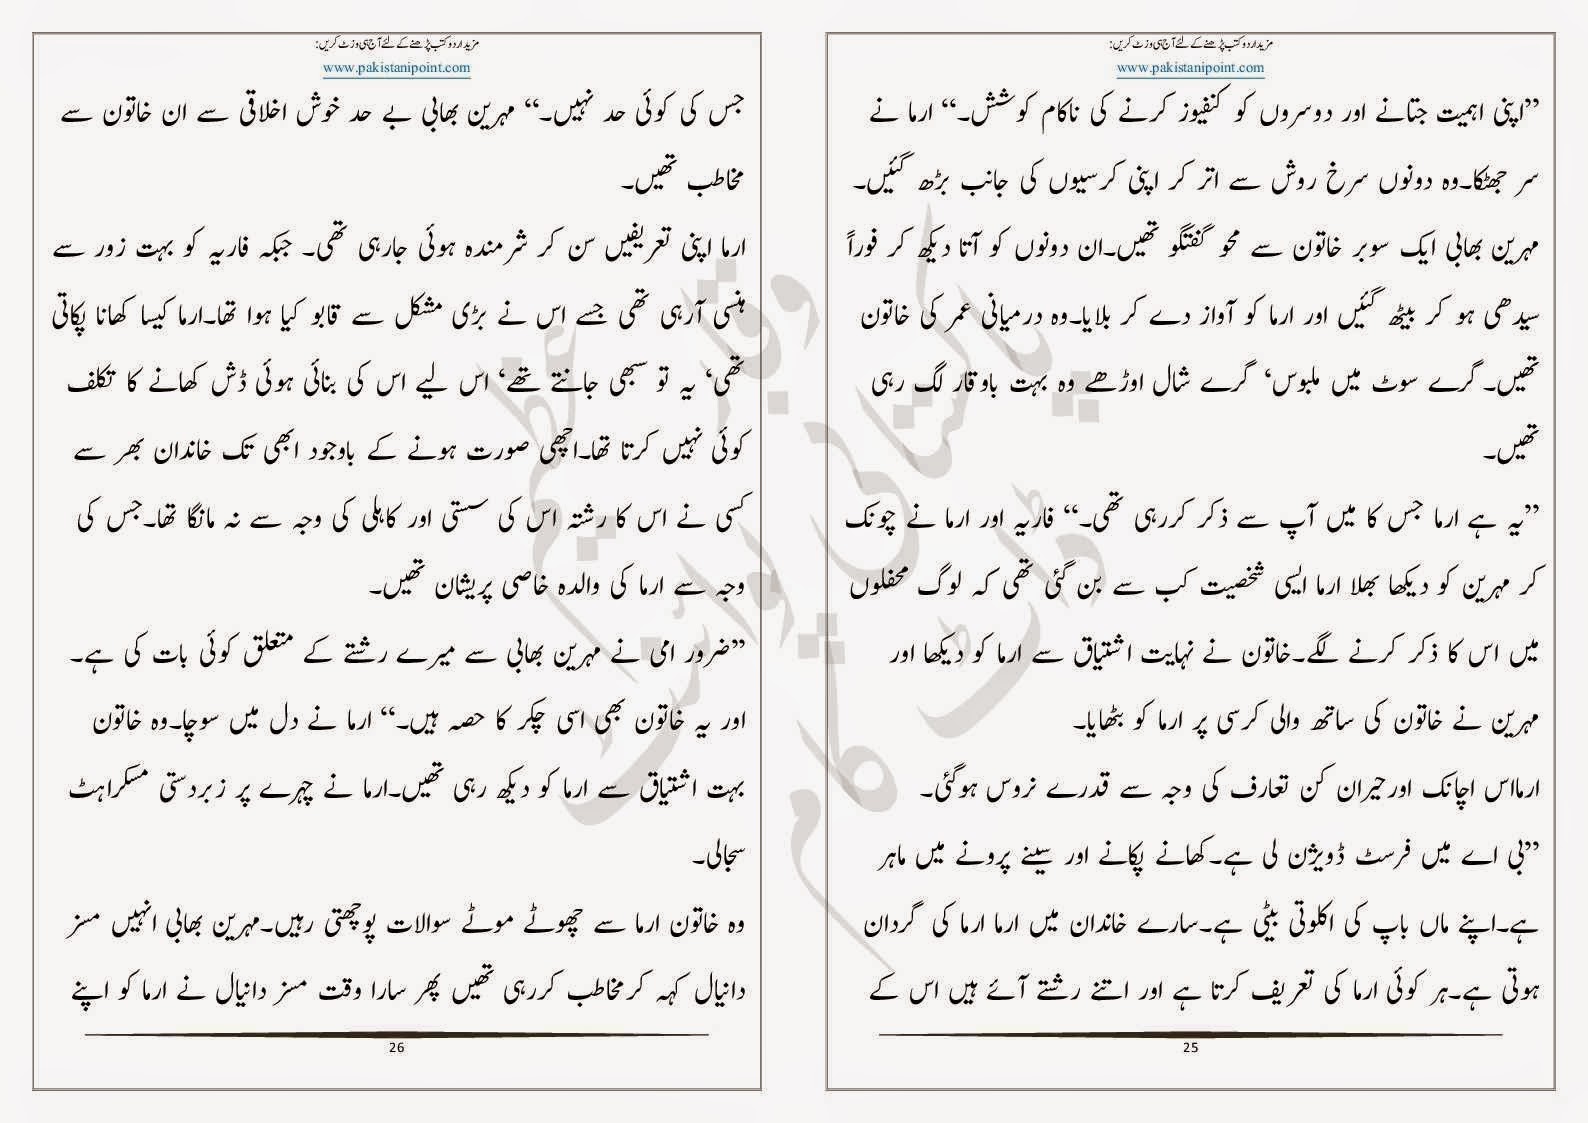 مزید اردو کتب پڑھنے کے لئے آج ہی وزٹ کریں:
www.pakistanipoint.com
”اپنی اہمیت جتانے اور دوسروں کو کنفیوز کرنے کی ناکام کوشش۔“ ارما نے
سر جھٹکا۔وہ دونوں سرخ روش سے اتر کر اپنی کرسیوں کی جانب بڑھ گئیں۔
مہرین بھابی ایک سوبر خاتون سے محو گفتگو تھیں۔ان دونوں کو آتا دیکھ کر فوراً
سیدھی ہو کر بیٹھ گئیں اور ارما کو آواز دے کر بلایا۔وہ درمیانی عمر کی خاتون
تھیں۔ گرے سوٹ میں ملبوس‘ گرے شال اوڑھے وہ بہت باوقار لگ رہی
تھیں۔
”یہ ہے ارما جس کا میں آپ سے ذکر کررہی تھی۔“ فاریہ اور ارما نے چونک
کر مہرین کو دیکھا بھلا ارما ایسی شخصیت کب سے بن گئی تھی کہ لوگ محفلوں
میں اس کا ذکر کرنے لگے۔خاتون نے نہایت اشتیاق سے ارما کو دیکھا اور
مہرین نے خاتون کی ساتھ والی کرسی پر ارما کو بٹھایا۔
ارمااس اچانک اورحیران کن تعارف کی وجہ سے قدرے نروس ہوگئی۔
”بی اے میں فرسٹ ڈویژن لی ہے۔کھانے پکانے اور سینے پرونے میں ماہر
ہے۔اپنے ماں باپ کی اکلوتی بیٹی ہے۔سارے خاندان میں ارما ارما کی گردان
ہوتی ہے۔ہر کوئی ارما کی تعریف کرتا ہے اور اتنے رشتے آئے ہیں اس کے
25
مزید اردو کتب پڑھنے کے لئے آج ہی وزٹ کریں:
www.pakistanipoint.com
جس کی کوئی حد نہیں۔“ مہرین بھابی بے حد خوش اخلاقی سے ان خاتون سے
مخاطب تھیں۔
ارما اپنی تعریفیں سن کر شرمندہ ہوئی جارہی تھی۔ جبکہ فاریہ کو بہت زور سے
ہنسی آرہی تھی جسے اس نے بڑی مشکل سے قابو کیا ہوا تھا۔ارما کیسا کھانا پکاتی
تھی‘ یہ تو سبھی جانتے تھے‘ اس لیے اس کی بنائی ہوئی ڈش کھانے کا تکلف
کوئی نہیں کرتا تھا۔اچھی صورت ہونے کے باوجود ابھی تک خاندان بھر سے
کسی نے اس کا رشتہ اس کی سستی اور کاہلی کی وجہ سے نہ مانگا تھا۔جس کی
وجہ سے ارما کی والدہ خاصی پریشان تھیں۔
”ضرور امی نے مہرین بھابی سے میرے رشتے کے متعلق کوئی بات کی ہے۔
اور یہ خاتون بھی اسی چکر کا حصہ ہیں۔“ ارما نے دل میں سوچا۔وہ خاتون
بہت اشتیاق سے ارما کو دیکھ رہی تھیں۔ارما نے چہرے پر زبردستی مسکراہٹ
سجالی۔
وہ خاتون ارما سے چھوٹے موٹے سوالات پوچھتی رہیں۔مہرین بھابی انہیں مسز
دانیال کہہ کرمخاطب کررہی تھیں پھر سارا وقت مسز دانیال نے ارما کو اپنے
26
وقار عظیم
پاکستانی پوائنٹ
ڈاٹ کام